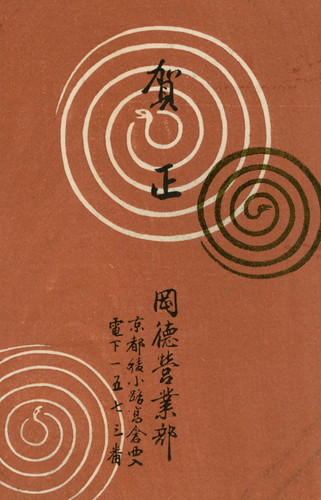 賀正
岡徳営業部
京都綾小路烏倉西入
電下一五七三番